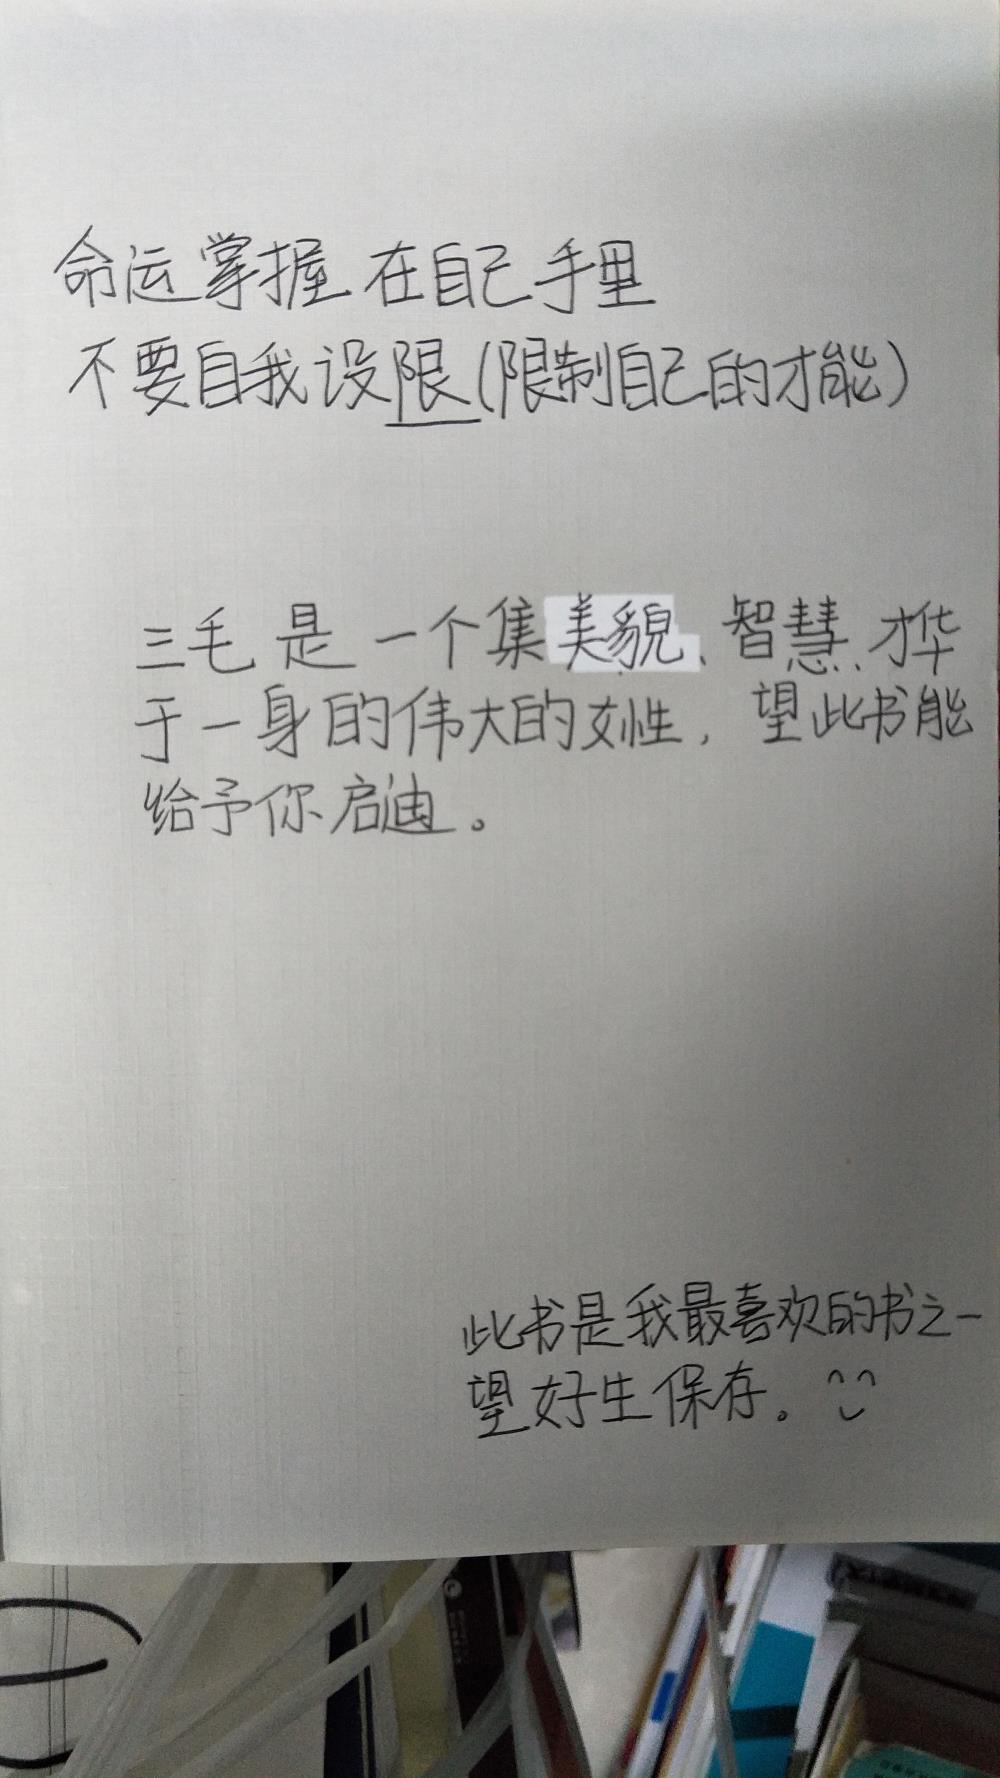 命运掌握在自己手里
不要自我设限(限制自己的才能)
三毛是一个集美貌、智慧、才华
于一身的伟大的女性，望此书能
给予你启迪。
此书是我最喜欢的书之一
望好生保存。